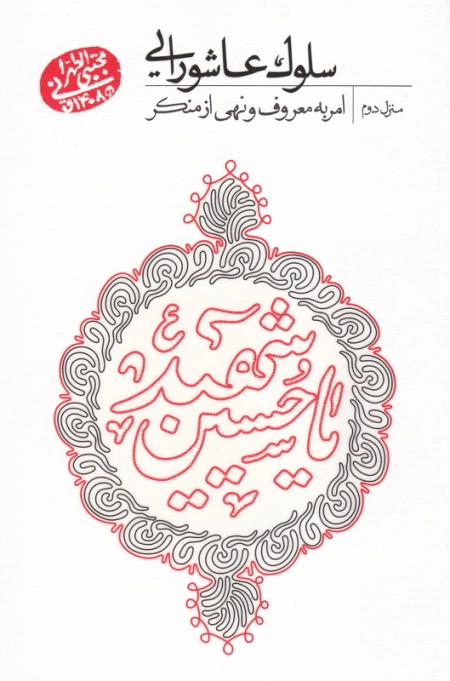 سلوک عاشورایی
منزل دوم | امر به معروف و نهی از منکر
مجتبی الطهرانی
۱۴۰۸ق
یا حسین شهید